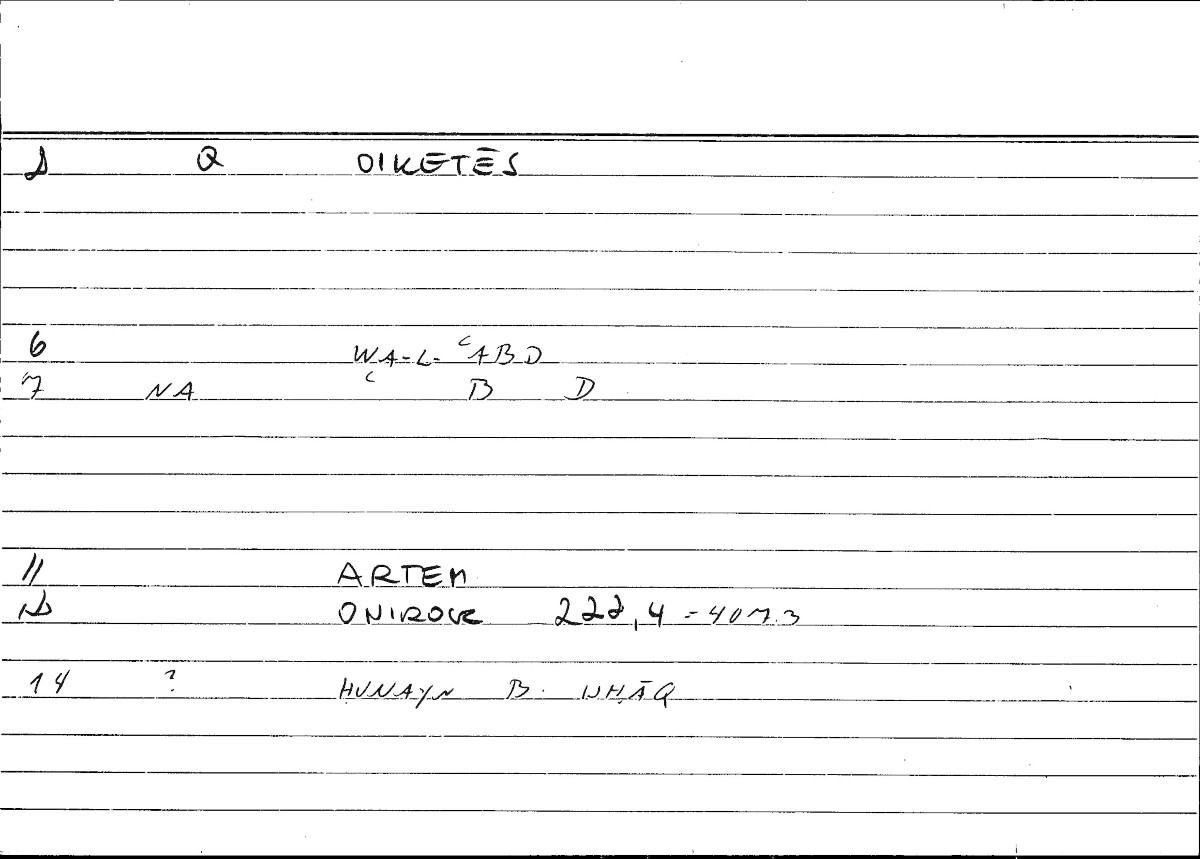 1 Q OIKETĒS
6 WA-L-ʿABD
7 NA ʿ B D
11 ARTEM
12 ONIROCR 222,4 = 407.3
14 ? ḤUNAYN B. ISḤĀQ